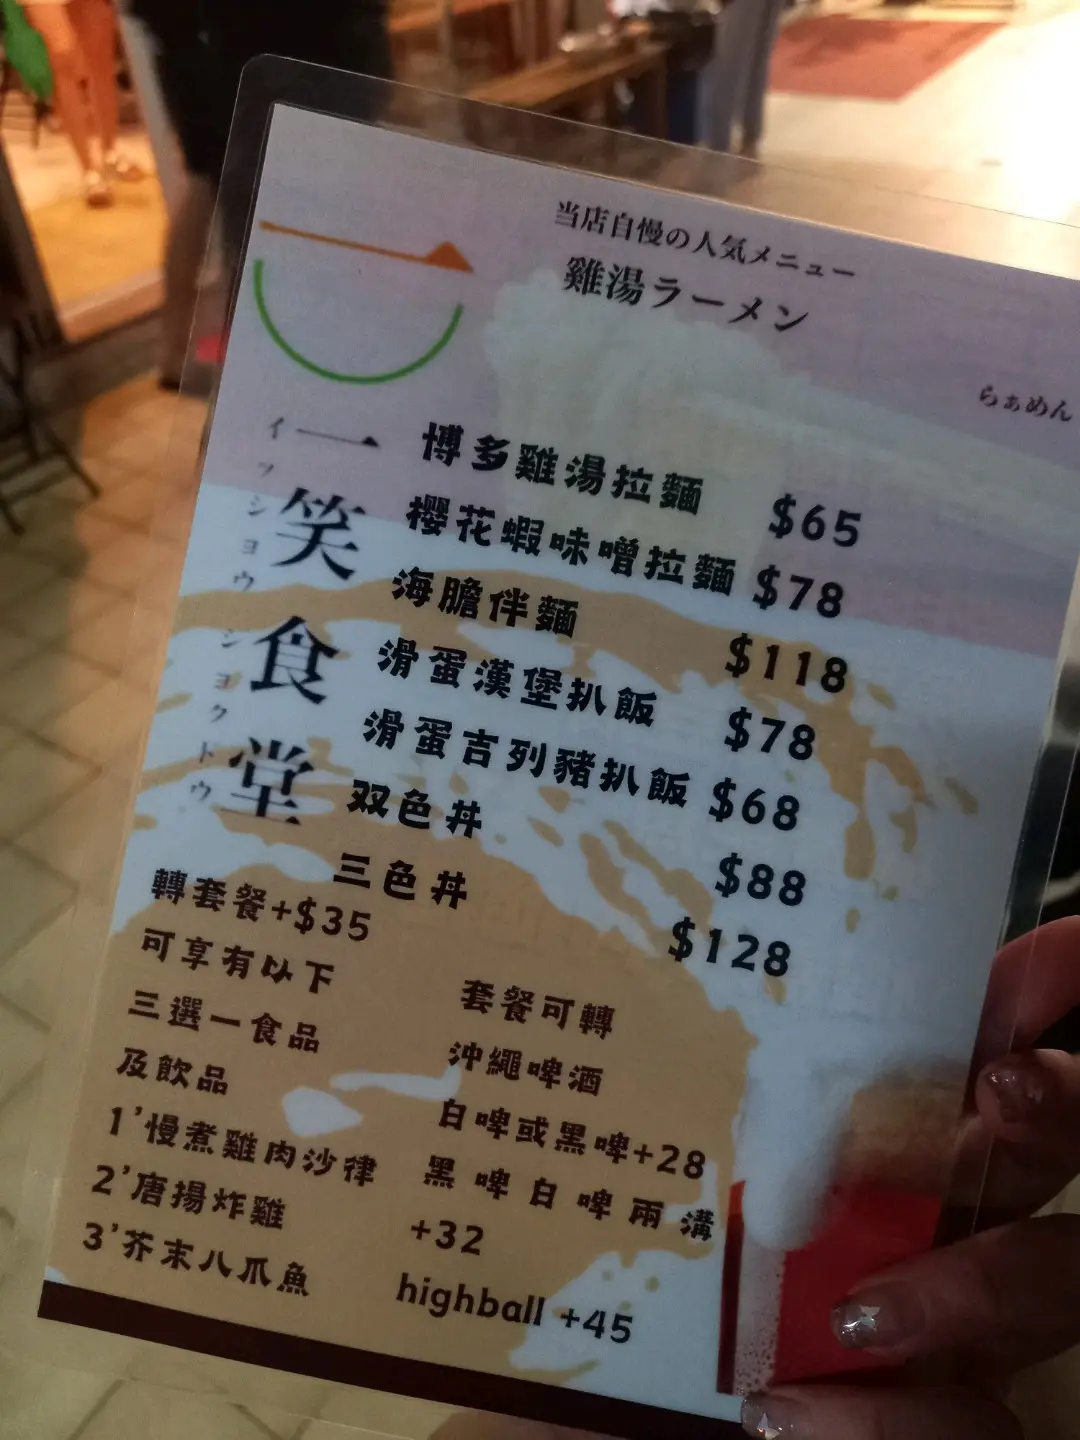 当店自慢の人気メニュー
雞湯ラーメン
らぁめん
一笑食堂
イッショウショクトウ
博多雞湯拉麵 $65
櫻花蝦味噌拉麵 $78
海膽伴麵 $118
滑蛋漢堡扒飯 $78
滑蛋吉列豬扒飯 $68
双色丼 $88
三色丼 $128
轉套餐+$35
可享有以下
三選一食品
及飲品
1'慢煮雞肉沙律
2'唐揚炸雞
3'芥末八爪魚
套餐可轉
沖繩啤酒
白啤或黑啤+28
黑啤白啤兩溝
+32
highball +45